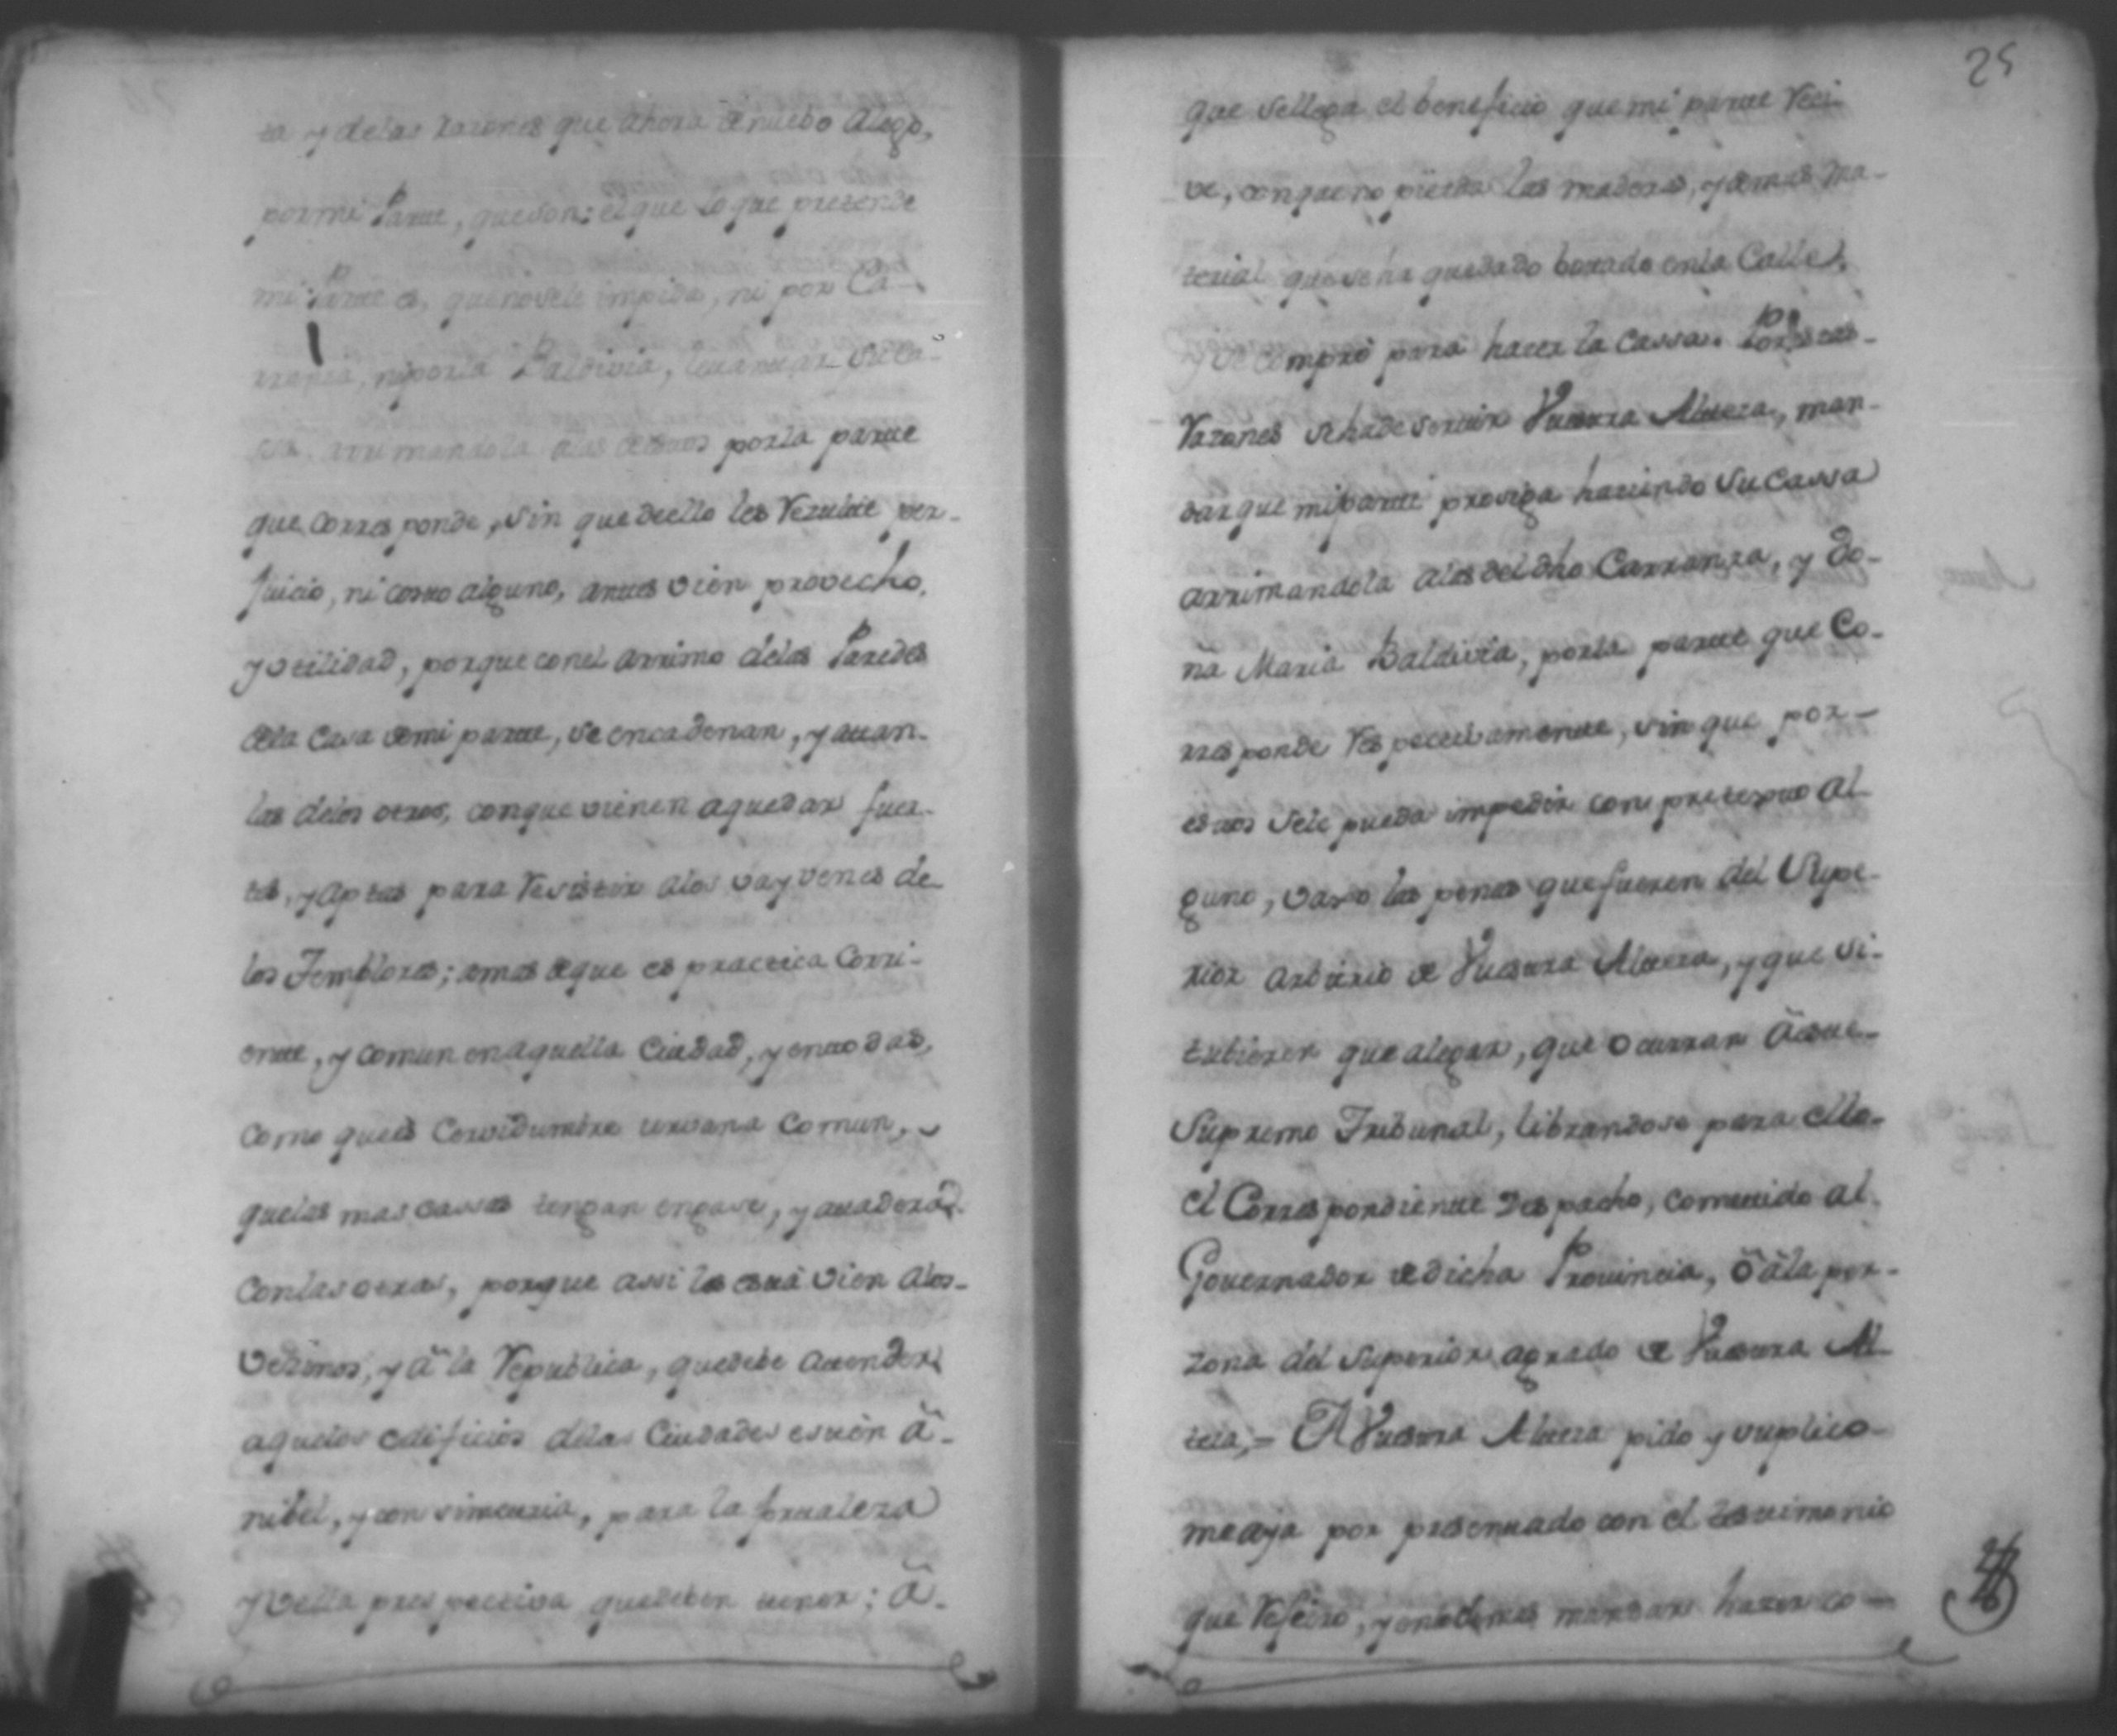 ta y delas razones que ahora de nuebo alego,
por mi Parte, que son: el que lo que pretende
mi Parte es, que no sele impida, ni por Ca-
rranza, ni por la Baldivia, levantar su ca-
sa arrimandola alas destos por la parte
que corresponde, sin que de ello les Resulte per-
juicio, ni costo alguno, antes vien provecho,
y vtilidad, porque con el arrimo delas Paredes
dela Casa de mi parte, se encadenan, y atan
las delos otros, conque vienen aquedar fuer-
tes, y aptas para Resistir alos vayvenes de
los Temblores; amas deque es practica Corri-
ente, y comun en aquella Ciudad, y en todas,
como que es Cervidumbre urvana Comun,
que las mas cassas tengan engase, y atadera
con las otras, porque assi les està vien alos
vezinos, y â la Republica, que debe atender
aquelos edificios delas Ciudades estèn â
nibel, y con simetria, para la fortaleza
y vella prespectiva que deben tener; â
25
que sellega el beneficio que mi parte Reci-
ve, con que no pierda las maderas, y demas ma-
terial que se ha quedado botado en la Calle,
y se comprò para hacer la Cassa. Por estas
Razones se hade servir Vuestra Alteza, man-
dar que mi parte prosiga haciendo su Cassa
arrimandola alas del dho Carranza, y Do-
ña Maria Baldivia, por la parte que Co-
rresponde Respectivamente, sin que por
estos sele pueda impedir con pretexto al-
guno, vaxo las penas que fueren del Supe-
rior arbitrio de Vuestra Alteza, y que si
tubieren que alegar, que ocurran â este
Supremo Tribunal, librandose para ello
el Correspondiente Despacho, cometido al
Governador de dicha Provincia, ô â la per-
zona del Superior agrado de Vuestra Al-
teza,= A Vuestra Alteza pido y suplico
me aya por presentado con el testimonio
que Refiero, y en lo demas mandar hazer co-